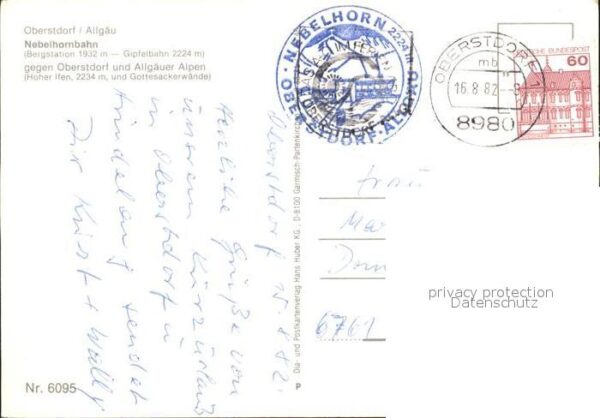 Oberstdorf / Allgäu
Nebelhornbahn
(Bergstation 1932 m — Gipfelbahn 2224 m)
gegen Oberstdorf und Allgäuer Alpen
(Hoher Ifen, 2234 m, und Gottesackerwände)
NEBELHORN 2224 m
OBERSTDORF-ALLGÄU
OBERSTDORF 1
mb
16.8.82-9
8980
DEUTSCHE BUNDESPOST
60
Oberstdorf 15.8.82.
Herzliche Grüße von
unserem Kurzurlaub
in Oberstdorf u.
Hindelang sendet
Dir Krist + Wally
Frau
Dom
6761
privacy protection
Datenschutz
Dia- und Postkartenverlag Hans Huber KG, D-8100 Garmisch-Partenkirchen
Nr. 6095
P